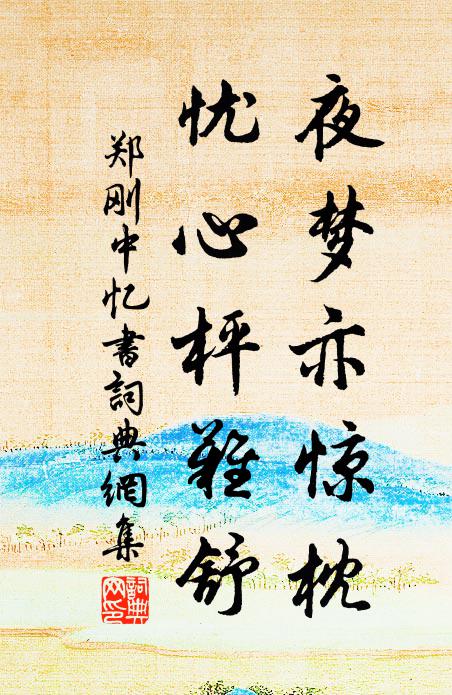 夜梦亦惊枕
忧心枰难舒
郑刚中忆书词典網集
詞典网